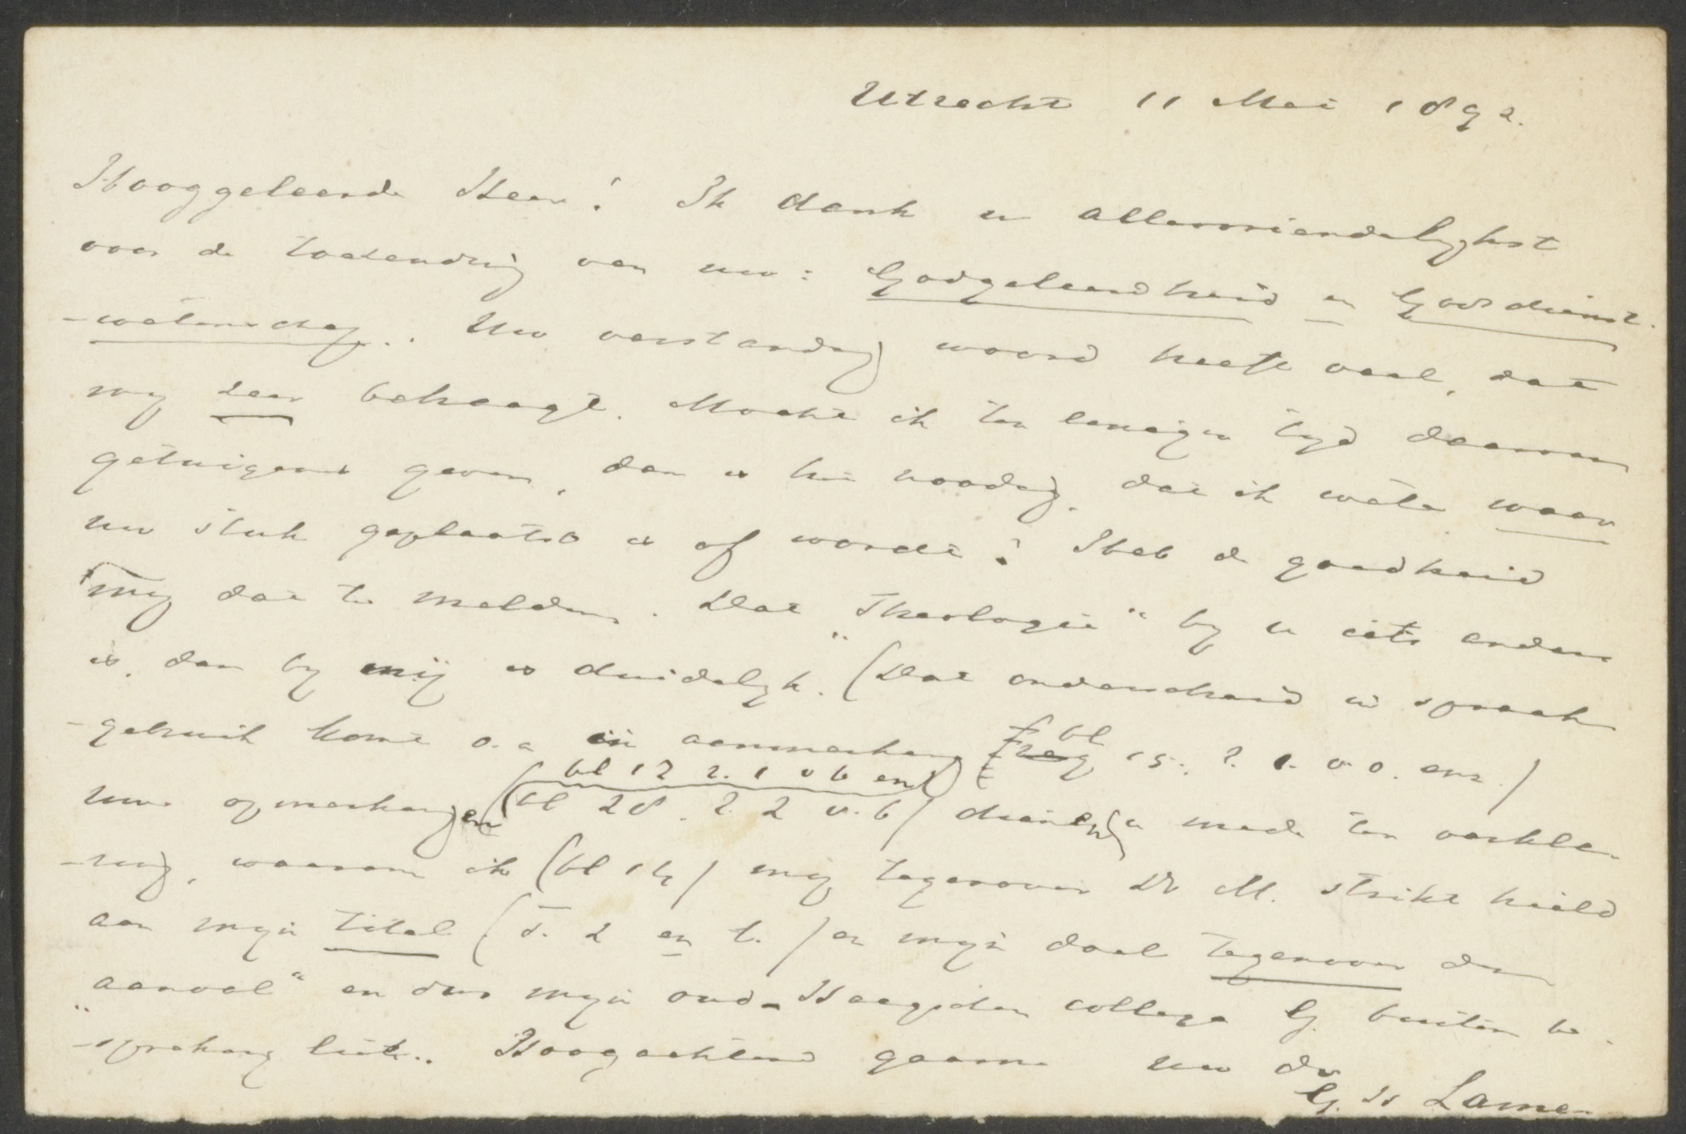 Utrecht 11 Mei 1892.
Hooggeleerde Heer! Ik dank u allervriendelykst
voor de toezending van uw: Godgeleerdheid en Godsdienst-
-wetenschap.. Uw verstandig woord heeft veel, dat
my zeer behaagt. Mocht ik ten eenigen tyd daarvan
getuigenis geven, dan is het noodig, dat ik wete waar
uw stuk geplaatst is of wordt? Heb de goedheid
my dat te melden. Dat „Theologie" by u iets anders
is, dan by mij is duidelyk. (Dat onderscheid in spraak-
-gebruik komt o.a. in aanmerking bl 15. r. 1. v. o. enz.)
Uwe opmerkingen (bl 12 r. 1 v b en) (bl 28. r. 2 v. b) dienen u mede ten verkla-
-ring, waarom ik (bl 14) mij tegenover Dr M. strikt hield
aan myn titel (T. 2 en t.) en myn doel tegenover den
„aanval" en dus myn oud-Haagschen collega G. buiten be-
-spreking liet.. Hoogachtend gaarne uw dv
G. H Lamers